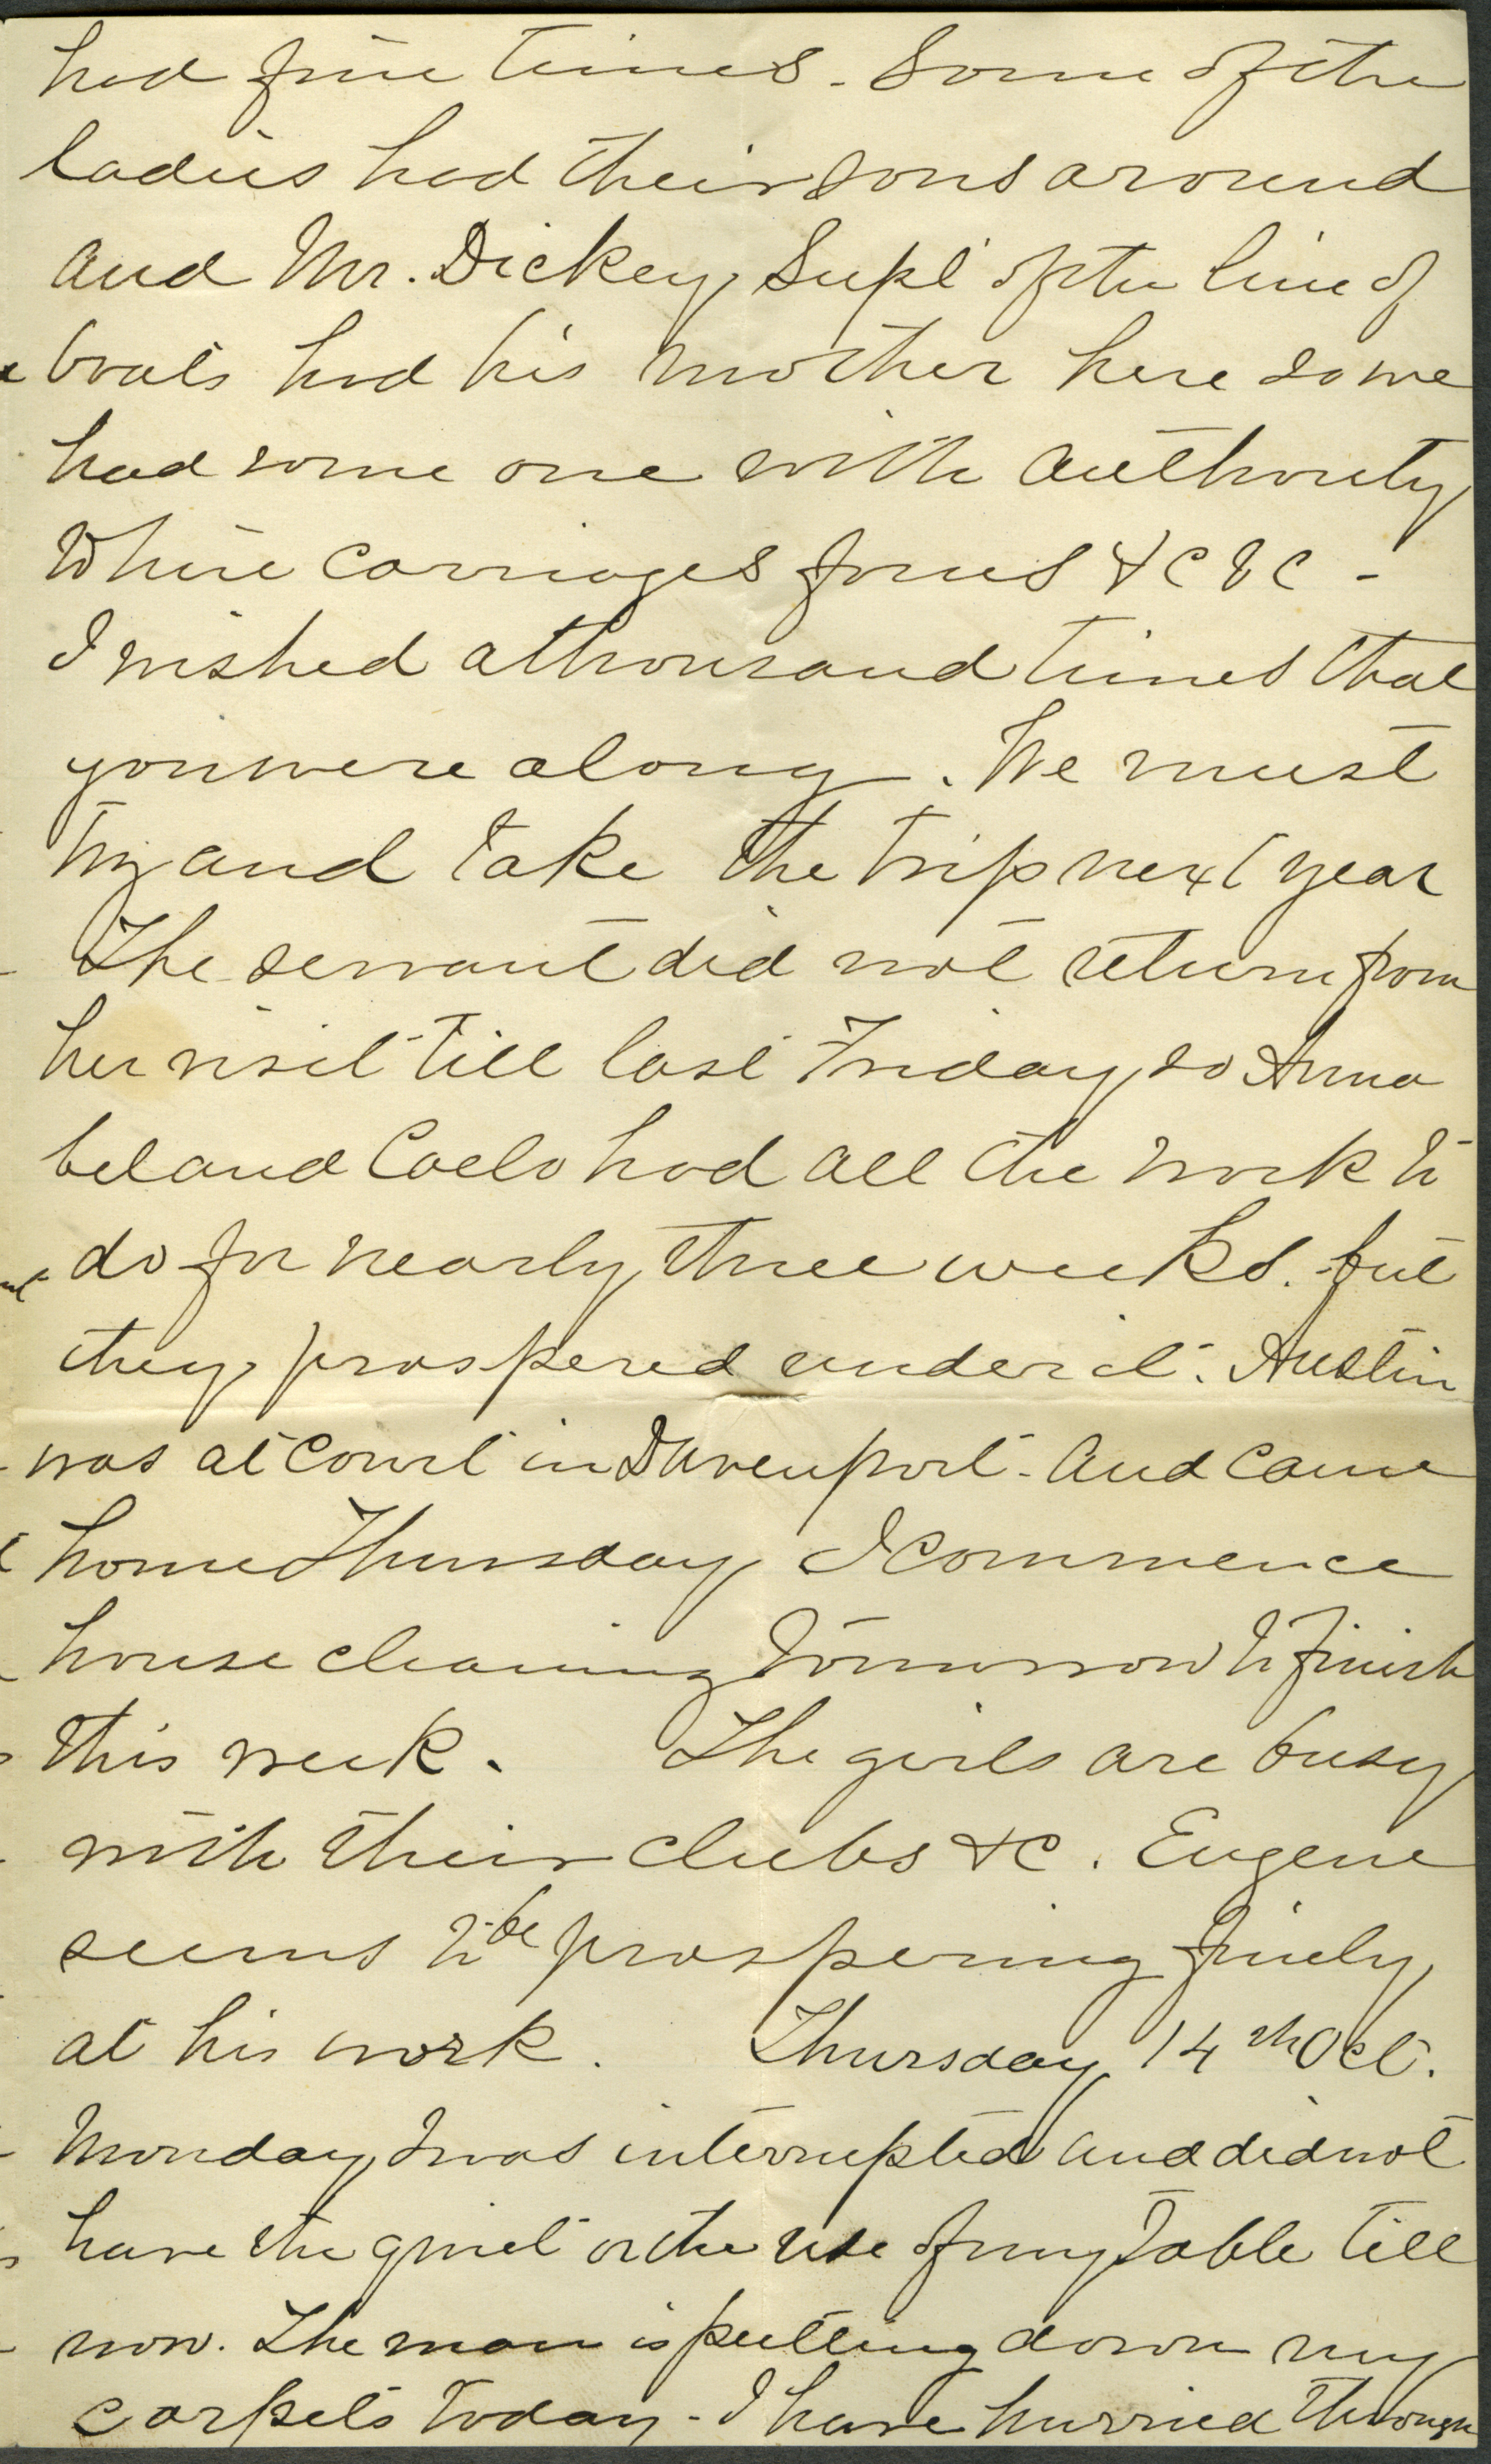 had fine times. Some of the
ladies had their sons around
and Mr. Dickey, Supt of the line of
boats had his mother here so we
had some one with authority
Where carriages &c &c -
I wished a thousand times that
you were along. We must
try and take the trip next year
The servant did not return from
her visit till last Friday, so Anna
bel and Coelo had all the work to
do for nearly three weeks. but
they prospered under it. Austin
was at Court in Davenport. and came
home Thursday I commence
house cleaning tomorrow to finish
this week. The girls are busy
with their clubs &c. Eugene
seems to be prospering finely,
at his work. Thursday 14th Oct.
Monday, I was interrupted and did not
have the quiet or the use of my table till
now. The man is putting down my
carpets today - I have hurried through